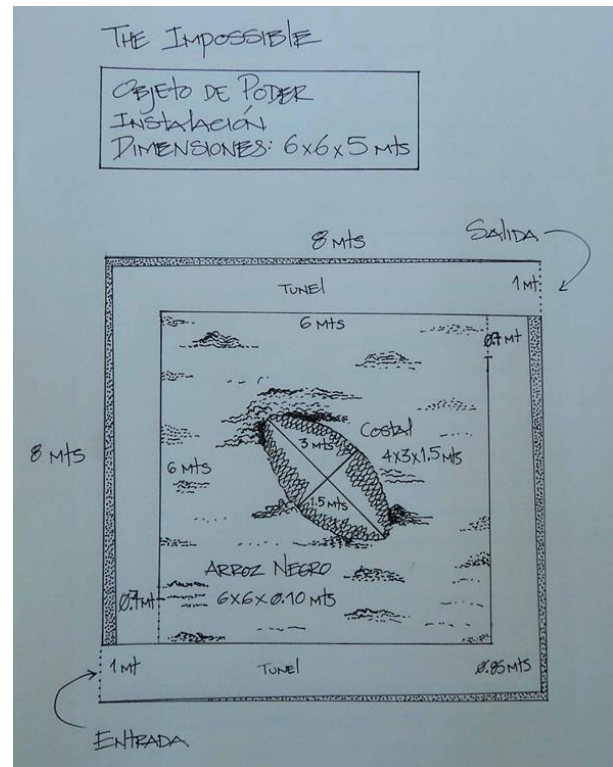 THE IMPOSSIBLE
OBJETO DE PODER
INSTALACIÓN
DIMENSIONES: 6x6x5 Mts
8 Mts
SALIDA
TUNEL
1 Mt
6 Mts
0.7 Mt
Costal
3 Mts
4x3x1.5 Mts
8 Mts
6 Mts
1.5 Mts
ARROZ NEGRO
0.7 Mt
6x6x0.10 Mts
1 Mt
TUNEL
0.85 Mts
ENTRADA